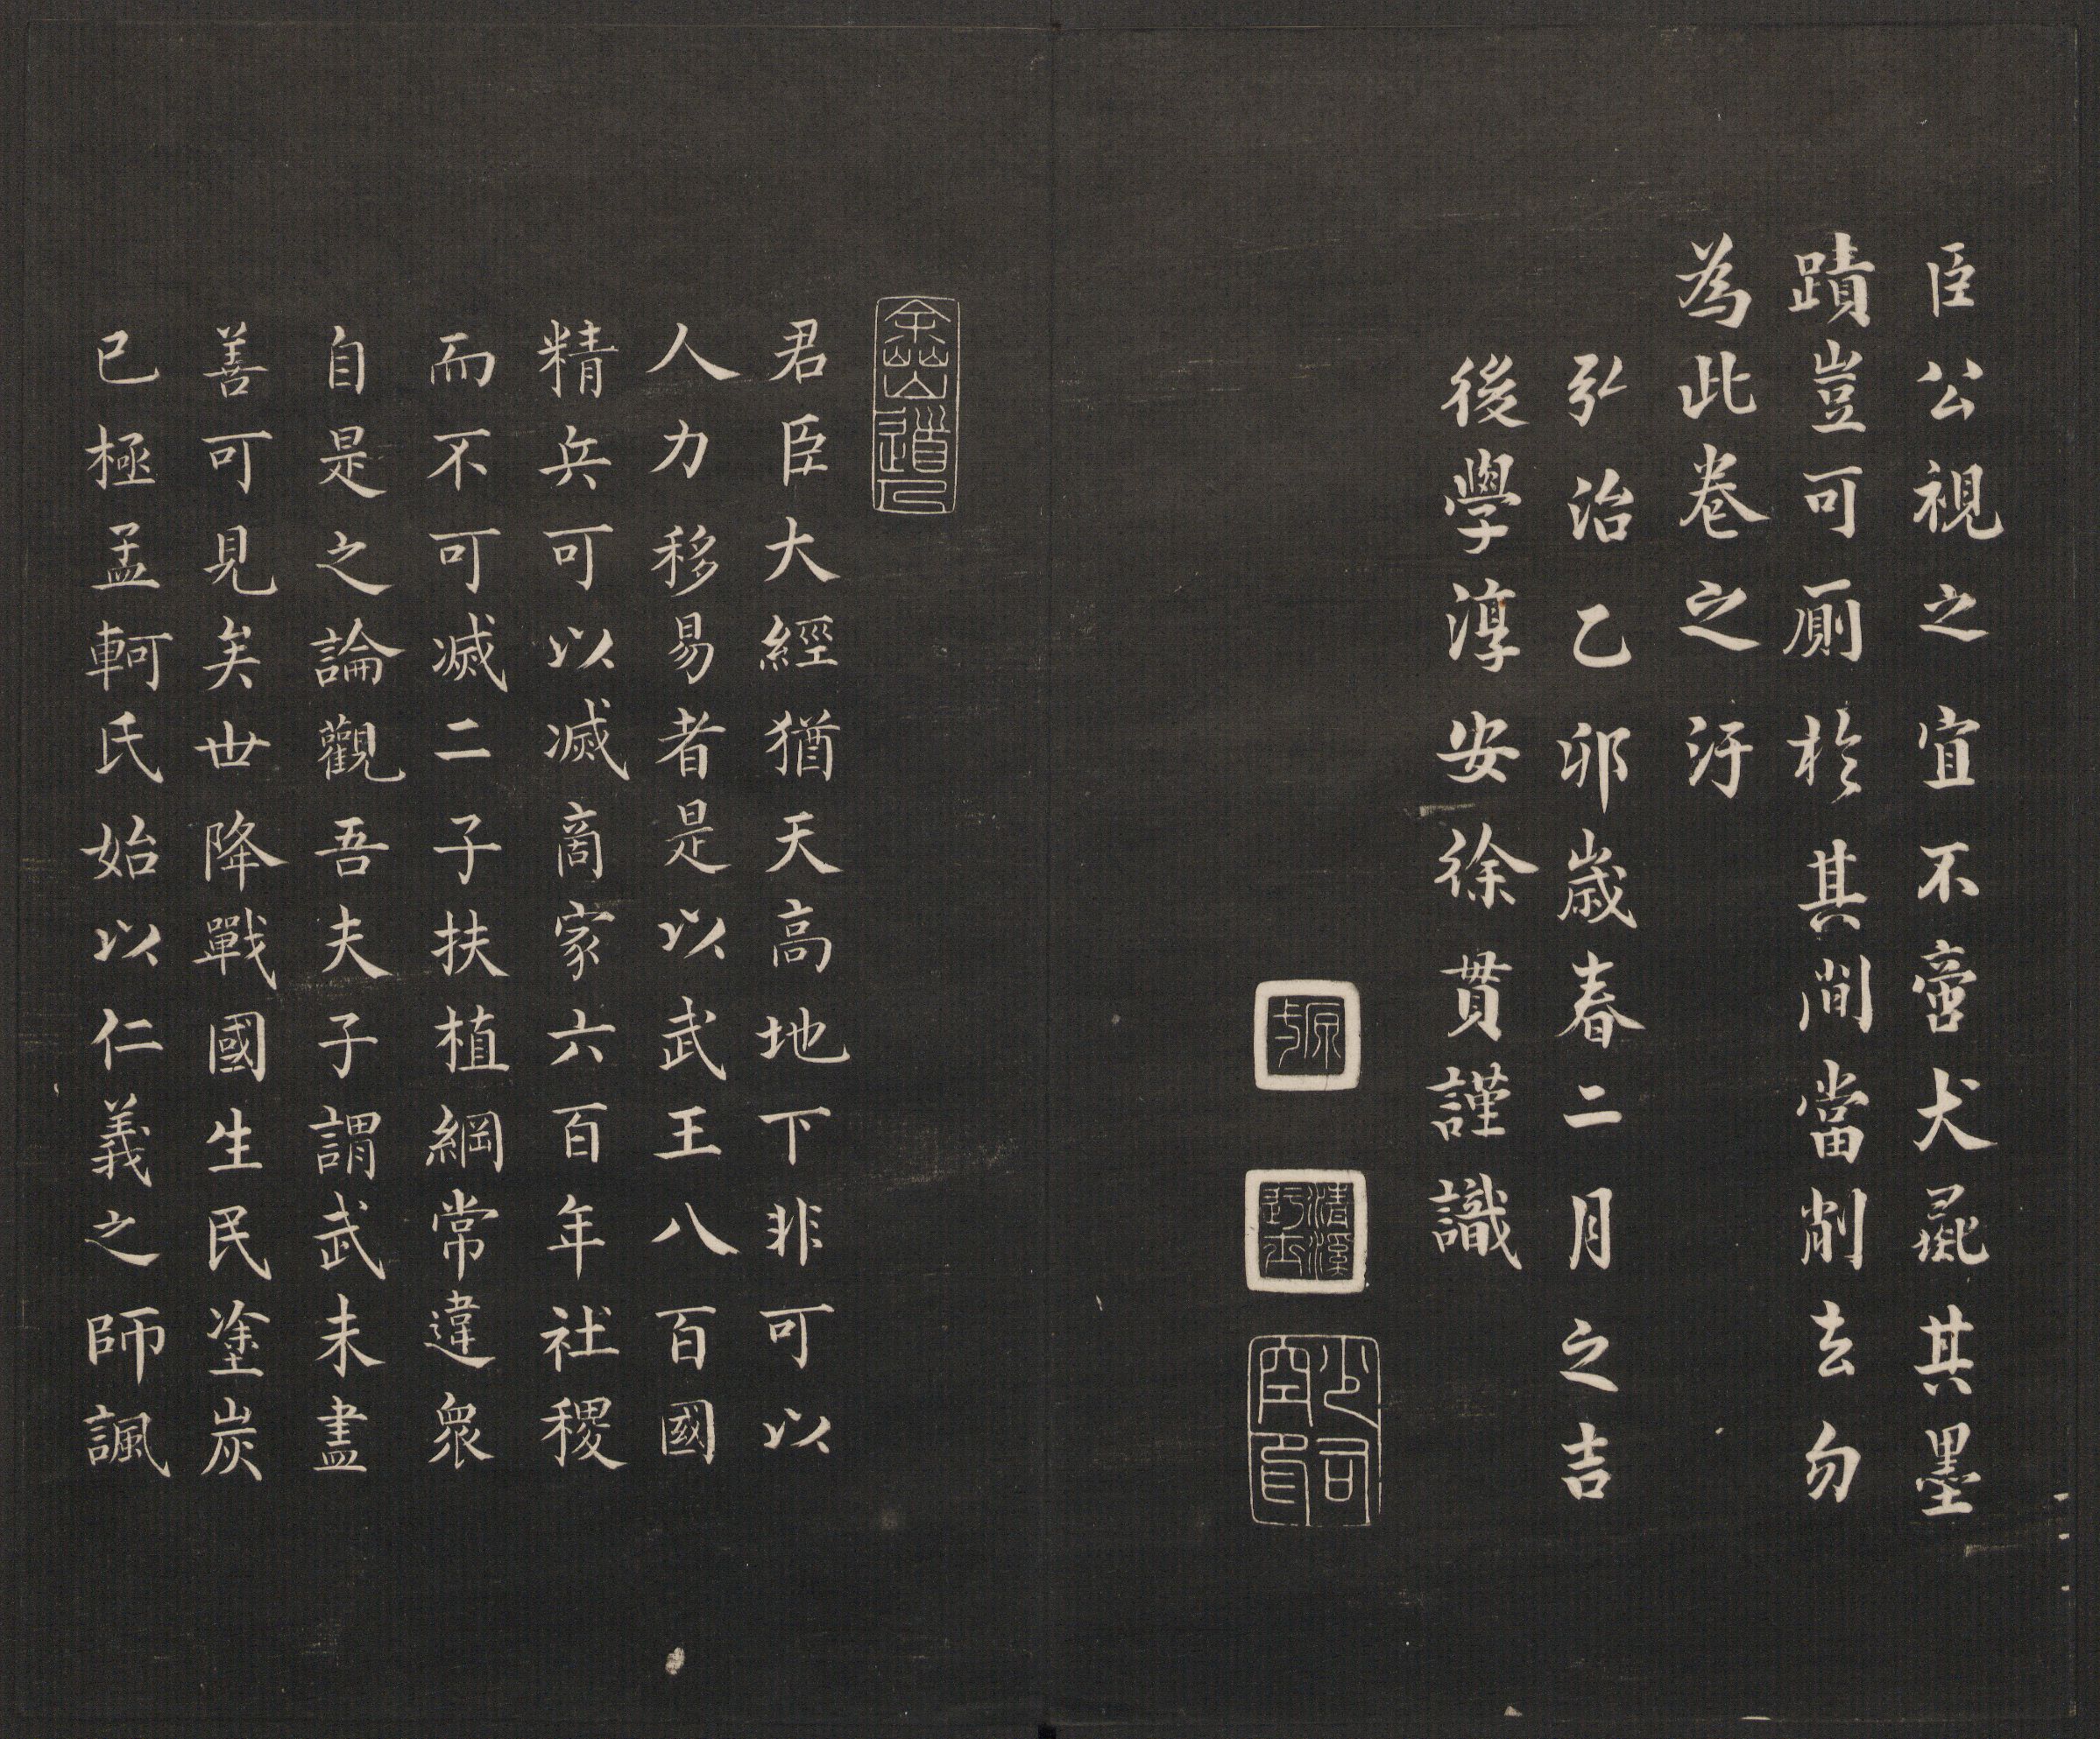 臣公視之宜不啻犬彘其墨
蹟豈可厠於其間當削去勿
為此卷之汙
弘治乙卯歲春二月之吉
後學淳安徐貫謹識
原一
清溪
少司空印
金山道人
君臣大經猶天高地下非可以
人力移易者是以武王八百國
精兵可以滅商家六百年社稷
而不可滅二子扶植綱常違衆
自是之論觀吾夫子謂武未盡
善可見矣世降戰國生民塗炭
已極孟軻氏始以仁義之師諷